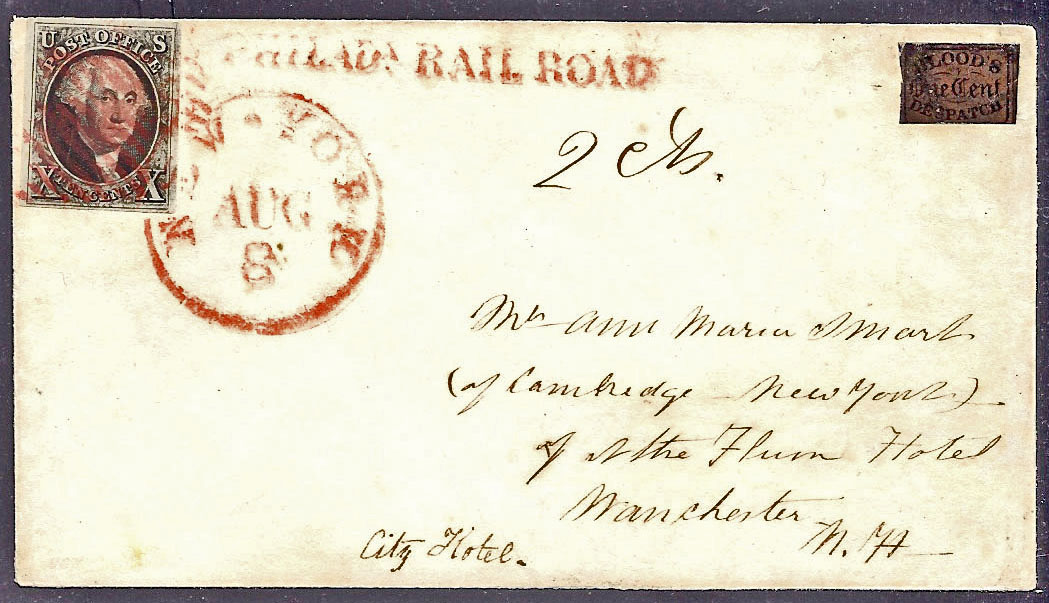 U S
POST OFFICE
X TEN CENTS X
PHILADA RAIL ROAD
NEW YORK
AUG
8
BLOOD'S
One Cent
DESPATCH
2 cts.
Mrs Ann Maria Smart
(of Cambridge New York)
of at the Flum Hotel
Manchester
N. H
City Hotel.